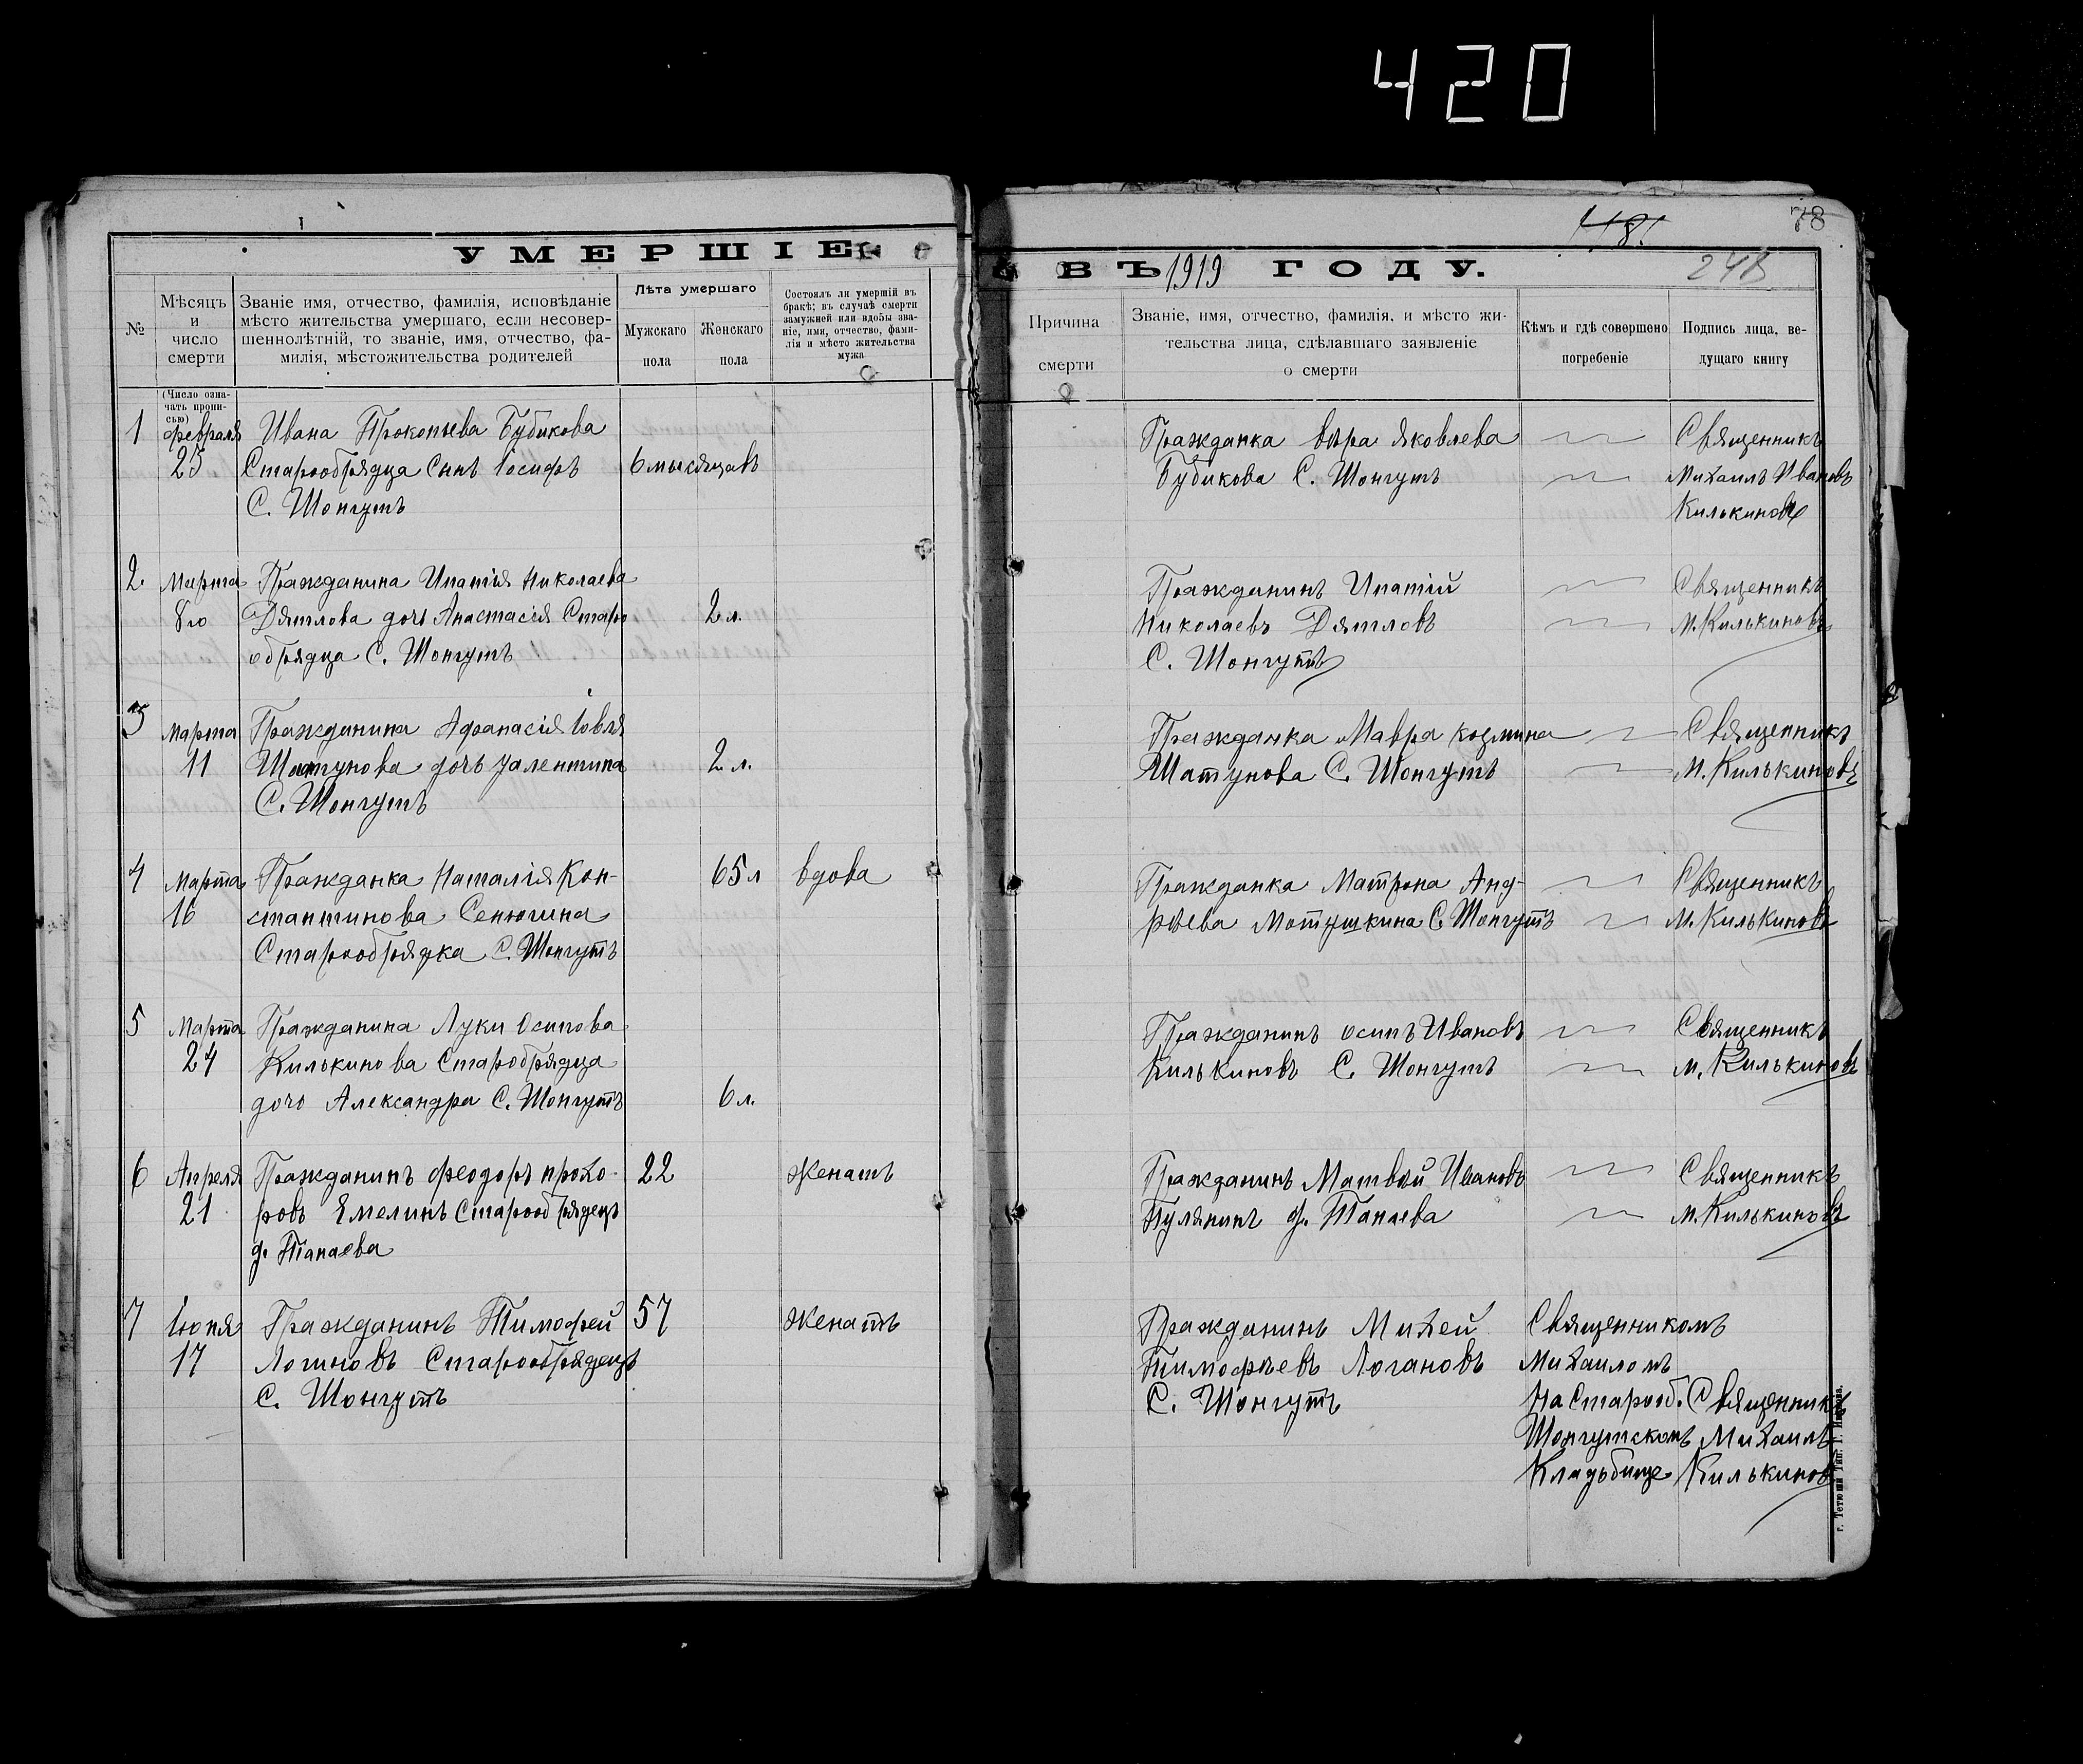 420
78
УМЕРШІЕ
ВЪ 1919 ГОДУ.
№
Мѣсяцъ
и
число
смерти
Званіе имя, отчество, фамилія, исповѣданіе
мѣсто жительства умершаго, если несовер-
шеннолѣтній, то званіе, имя, отчество, фа-
милія, мѣстожительства родителей
Лѣта умершаго
Мужскаго
пола
Женскаго
пола
Состоялъ ли умершій въ
бракѣ; въ случаѣ смерти
замужней или вдовы зва-
ніе, имя, отчество, фами-
лія и мѣсто жительства
мужа
Причина
смерти
Званіе, имя, отчество, фамилія, и мѣсто жи-
тельства лица, сдѣлавшаго заявленіе
о смерти
Кѣмъ и гдѣ совершено
погребеніе
Подпись лица, ве-
дущаго книгу
(Число озна-
чать пропи-
сью)
1
февраля
25
Ивана Прокопьева Бубикова
Старообрядца Сынъ Іосифъ
С. Шонгутъ
6 мысяцавъ
Гражданка вѣра Яковлева
Бубикова С. Шонгутъ
Священникъ
Михаилъ Ивановъ
Килькиновъ
2.
Марта
8го
Гражданина Ипатія Николаева
Дятлова дочь Анастасія Старо
обрядца С. Шонгутъ
2 л.
Гражданинъ Ипатій
Николаевъ Дятловъ
С. Шонгутъ
Священникъ
М. Килькиновъ
3
Марта
11
Гражданина Афанасія Іовля
Шатунова дочь уалентина
С. Шонгутъ
2 л.
Гражданка Мавра козмина
Шатунова С. Шонгутъ
Священникъ
М. Килькиновъ
4
Марта
16
Гражданка Наталія Кон-
стантинова Сенюгина
Старообрядка С. Шонгутъ
65 л
вдова
Гражданка Матрона Анд-
рѣева Мотушкина С. Шонгутъ
Священникъ
М. Килькиновъ
5
Марта
24
Гражданина Луки Осипова
Килькинова Старобрядца
дочь Александра С. Шонгутъ
6 л.
Гражданинъ осипъ Ивановъ
Килькиновъ С. Шонгутъ
Священникъ
М. Килькиновъ
6
Апреля
21
Гражданинъ феодоръ прохо-
ровъ Емелинъ Старообрядецъ
д. Танаева
22
Женатъ
Гражданинъ Матвѣй Ивановъ
Пулянинъ д. Танаева
Священникъ
М. Килькиновъ
7
Іюня
17
Гражданинъ Тимофей
Логиновъ Старообрядецъ
С. Шонгутъ
57
Женатъ
Гражданинъ Михей
Тимофѣевъ Логановъ
С. Шонгутъ
Священникомъ
Михаиломъ
На Старооб.
Шонгутскомъ
Кладьбище
Священникъ
Михаилъ
Килькиновъ